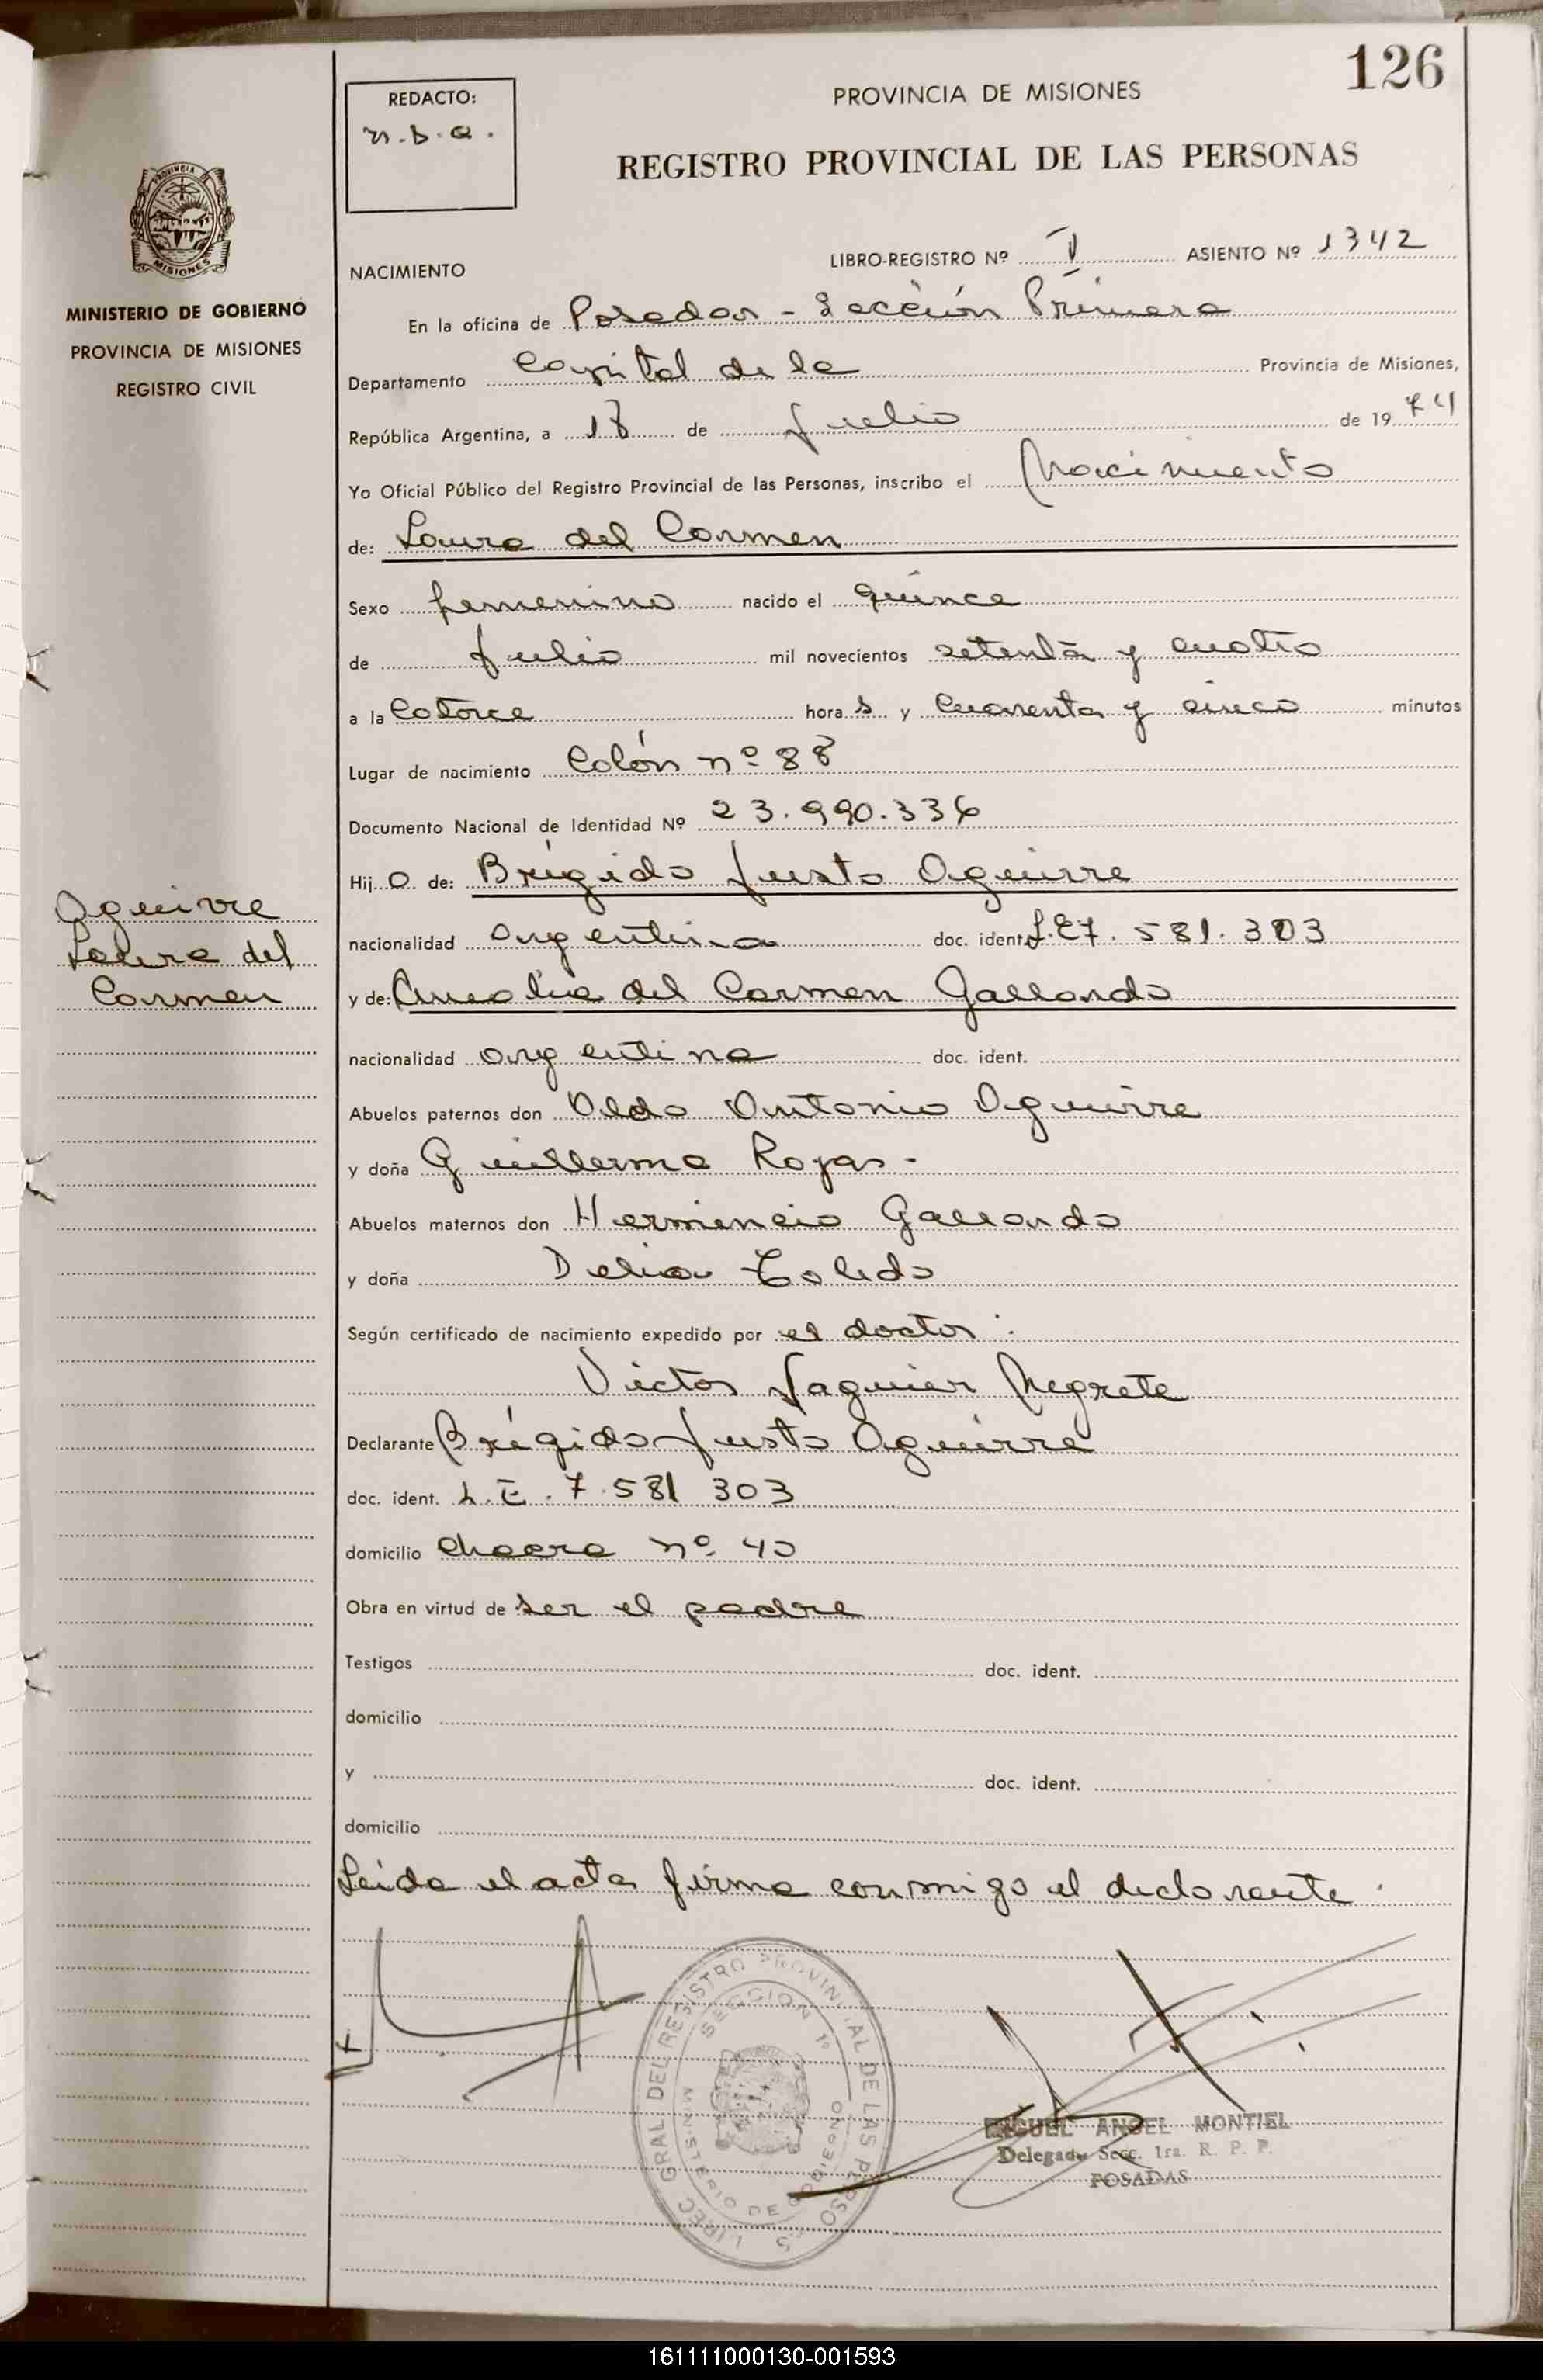 126
REDACTO:
n.b.a.
PROVINCIA DE MISIONES
REGISTRO PROVINCIAL DE LAS PERSONAS
PROVINCIA
MISIONES
MINISTERIO DE GOBIERNO
PROVINCIA DE MISIONES
REGISTRO CIVIL
NACIMIENTO
LIBRO-REGISTRO Nº V ASIENTO Nº 1342
En la oficina de Posadas - Sección Primera
Departamento Capital de la Provincia de Misiones,
República Argentina, a 18 de Julio de 1974
Yo Oficial Público del Registro Provincial de las Personas, inscribo el Nacimiento
de: Laura del Carmen
Sexo femenino nacido el quince
de Julio mil novecientos setenta y cuatro
a la Catorce hora s y Cuarenta y cinco minutos
Lugar de nacimiento Colón nº 88
Documento Nacional de Identidad Nº 23.990.336
Hij a de: Brígido Justo Aguirre
nacionalidad argentina doc. ident. L.E 7.581.303
y de: Amalia del Carmen Gallardo
nacionalidad argentina doc. ident.
Abuelos paternos don Aldo Antonio Aguirre
y doña Guillerma Rojas.
Abuelos maternos don Hermencio Gallardo
y doña Delia Toledo
Según certificado de nacimiento expedido por el doctor:
Victor Jaquier Negrete
Declarante Brígido Justo Aguirre
doc. ident. L.E. 7.581 303
domicilio Chacra nº 40
Obra en virtud de ser el padre
Testigos doc. ident.
domicilio
y doc. ident.
domicilio
Leída el acta firma conmigo el declarante.
Aguirre
Laura del
Carmen
DIREC. GRAL DEL REGISTRO PROVINCIAL DE LAS PERSONAS
SECCION 1ª
MINISTERIO DE GOBIERNO
MIGUEL ANGEL MONTIEL
Delegado Secc. 1ra. R. P. P.
POSADAS
161111000130-001593